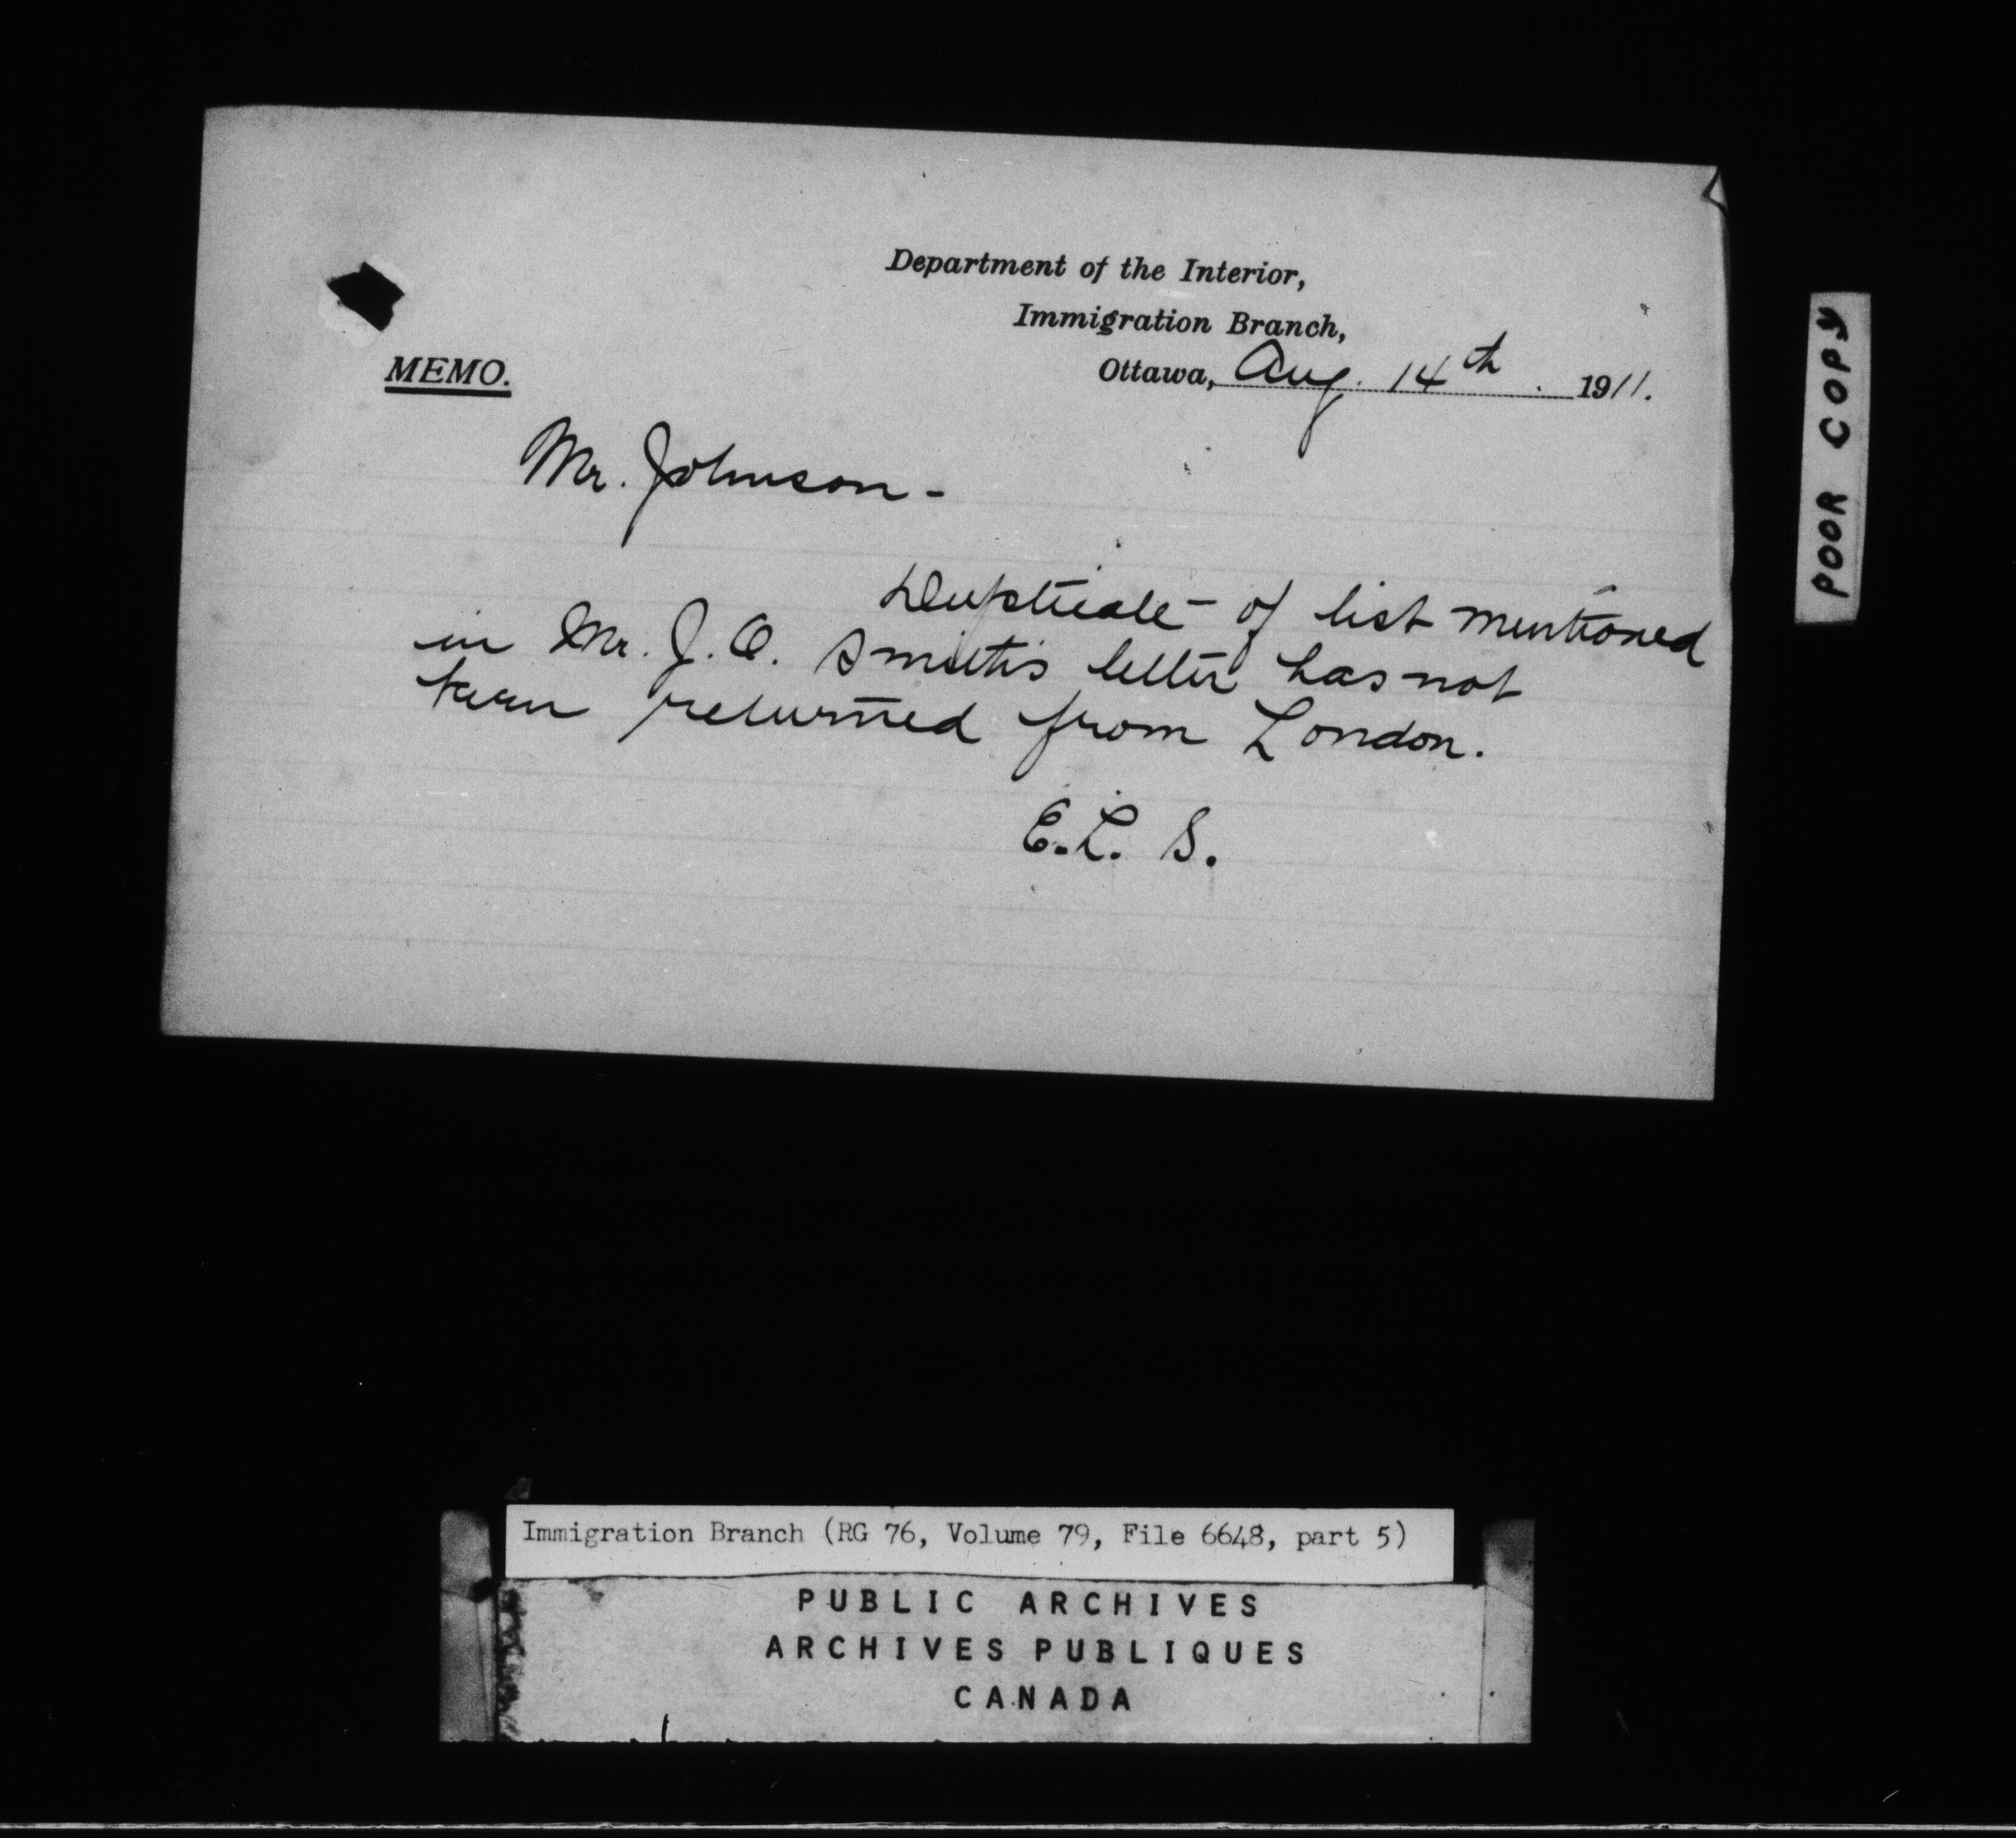 Department of the Interior,
Immigration Branch,
MEMO.
Ottawa, Aug. 14th. 1911.
Mr. Johnson -
Duplicate of list mentioned
in Mr. J. O. Smith's letter has not
been returned from London.
E. L. S.
POOR COPY
Immigration Branch (RG 76, Volume 79, File 6648, part 5)
PUBLIC ARCHIVES
ARCHIVES PUBLIQUES
CANADA